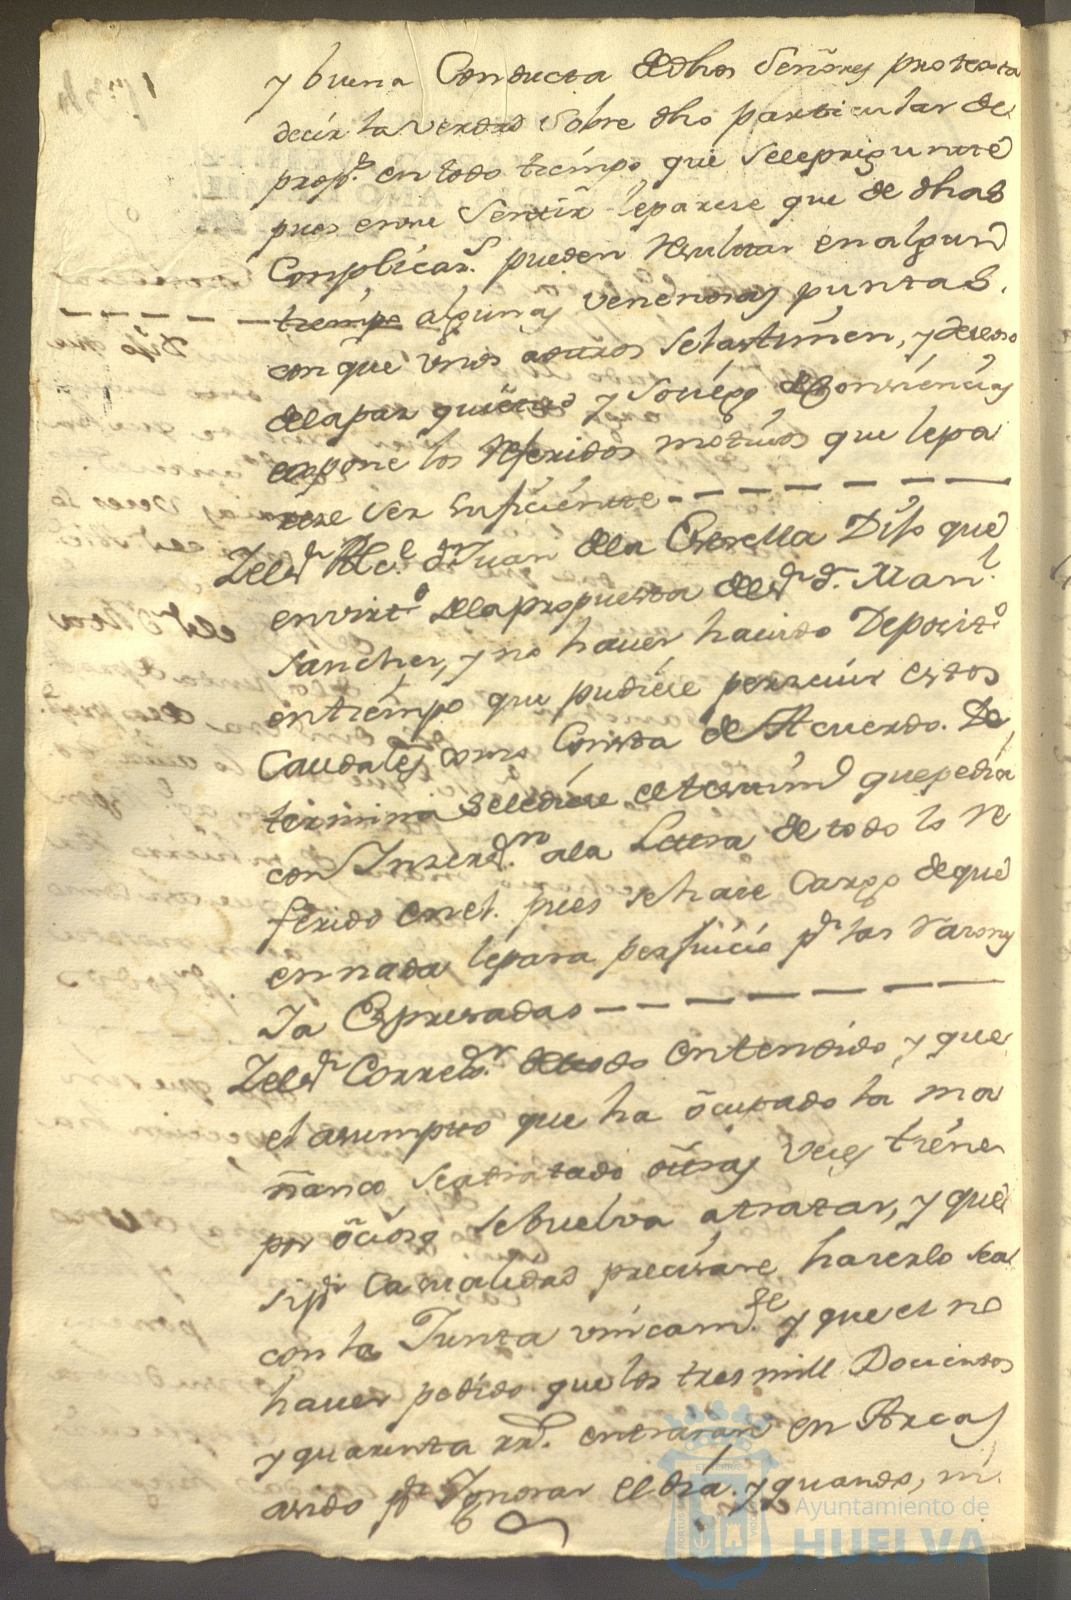 y buena Conducta de dhos Señores protexta
decir la verdad sobre dho particular de
prop.s en todo tiempo que sele pregunte
pues en su sentir le parece que de dhas
Conplicaz.s pueden resultar en algun
tiempo algunas venenosas puntas.
con que unos a otros se lastimen, y deseoso
de la paz quietud y sosiego de Conciencias
expone los referidos motivos que lepa
reze ser suficiente
Zel s.r Alc.e d.n Juan de la Estrella Dijo que
en virt.o de la propuesta del s.r d.n Man.l
Sanchez, y no haver havido Deposit.o
en tiempo que pudiese percivir estos
Caudales como Consta de Acuerdo. De
termina sele diese el testim.o que pedia
con Inserz.on a la Letra de todo lo re
ferido en el. pues se hace Cargo de que
en nada le para perjuicio p.r las razones
Ia Expresadas
Zel s.r Correx.or de todo entendido y que
el asumpto que ha ocupado la ma
ñana se a tratado otras veces tiene
por ocioso se buelva a tratar, y que
si p.r casualidad precisare hacerlo sea
con la Junta unicam.te y que el no
haver pedido que los tres mill Docientos
y quarenta rr.s entraran en Arcas
a sido p.r Ygnorar el dia. y quando, ni
Ayuntamiento de
HUELVA